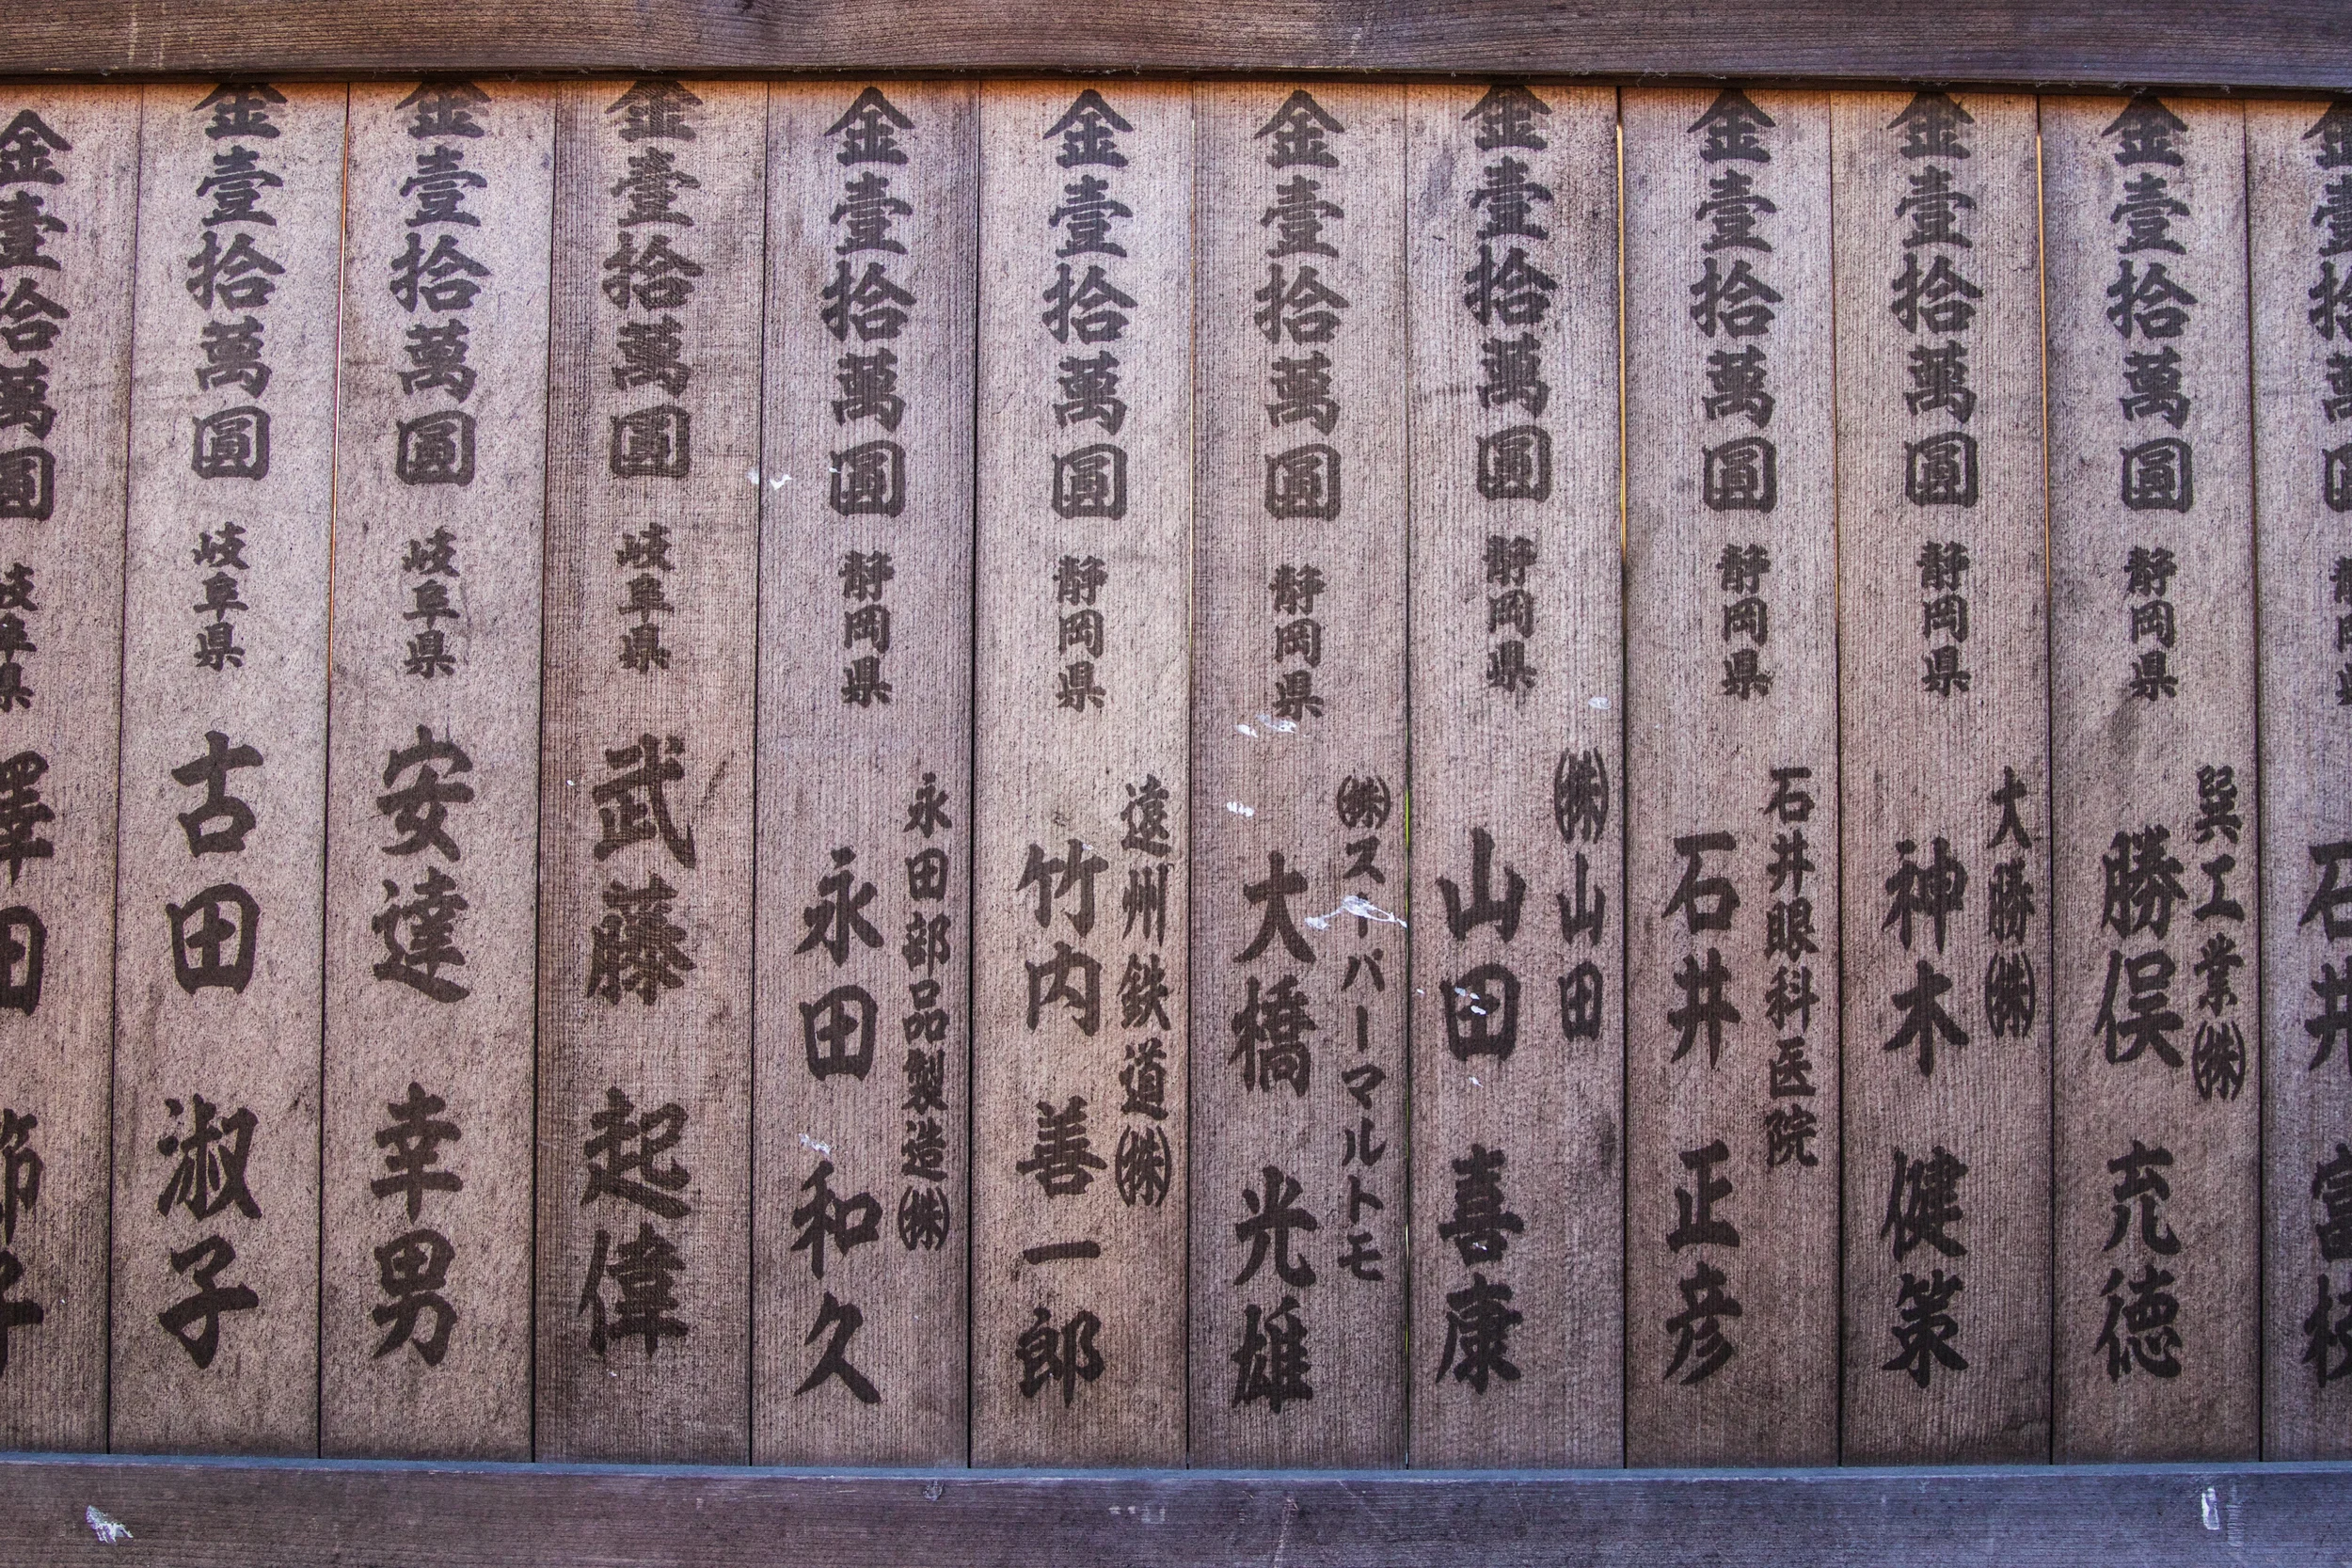 金壹拾萬圓 静岡県
石井
金壹拾萬圓 静岡県
巽工業㈱
勝俣 充徳
金壹拾萬圓 静岡県
大勝㈱
神木 健策
金壹拾萬圓 静岡県
石井眼科医院
石井 正彦
金壹拾萬圓 静岡県
㈱山田
山田 喜康
金壹拾萬圓 静岡県
㈱スーパーマルトモ
大橋 光雄
金壹拾萬圓 静岡県
遠州鉄道㈱
竹内 善一郎
金壹拾萬圓 静岡県
永田部品製造㈱
永田 和久
金壹拾萬圓 岐阜県 武藤 起偉
金壹拾萬圓 岐阜県 安達 幸男
金壹拾萬圓 岐阜県 古田 淑子
金壹拾萬圓 岐阜県